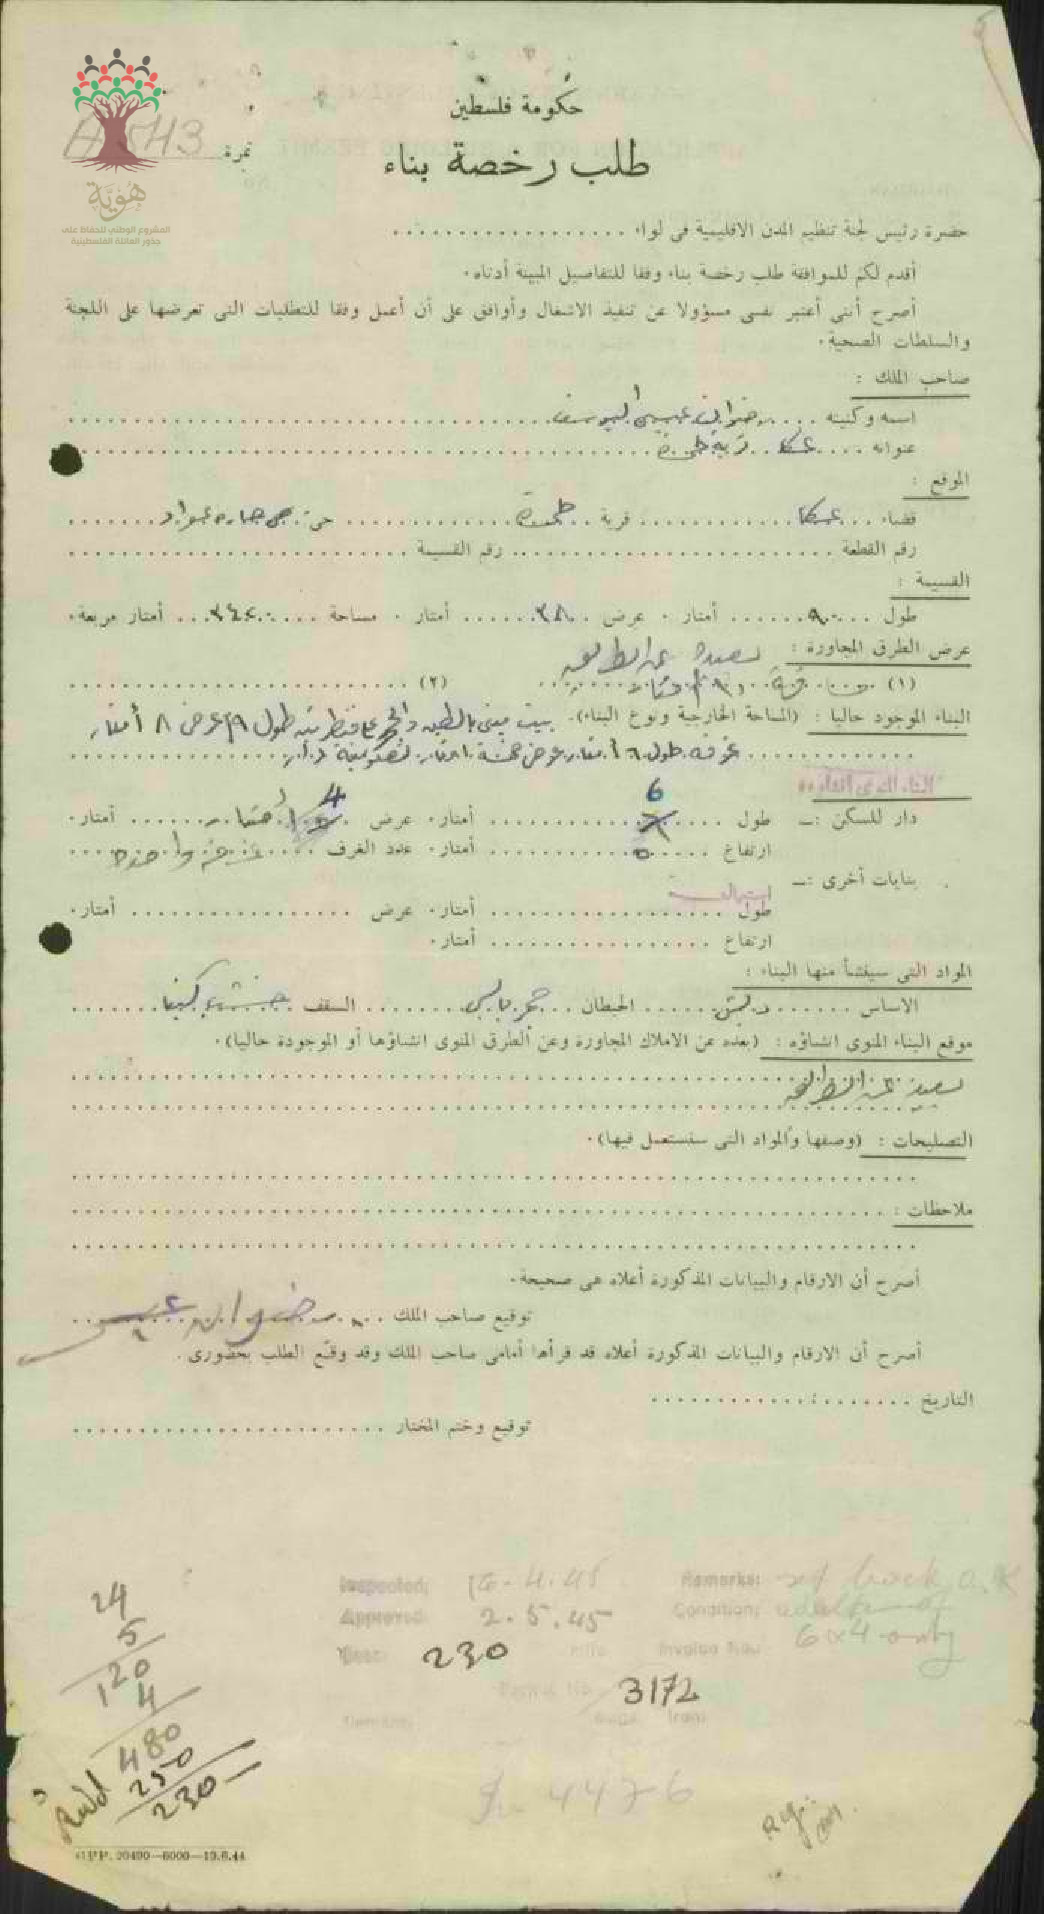 هُوِيَّة
المشروع الوطني للحفاظ على
جذور العائلة الفلسطينية
حكومة فلسطين
نمرة
طلب رخصة بناء
حضرة رئيس لجنة تنظيم المدن الاقليمية في لواء
أقدم لكم للموافقة طلب رخصة بناء وفقا للتفاصيل المبينة أدناه.
أصرح أنني أعتبر نفسي مسؤولا عن تنفيذ الاشغال وأوافق على أن أعمل وفقا للمتطلبات التي تعرضها على اللجنة
والسلطات الصحية.
صاحب الملك :
اسمه وكنيته ..... رضوان عيسى اليوسف
عنوانه .... عكا .. قرية طمرة
الموقع :
قضاء ... عكا ............ قرية .. طمرة ............ حي:
رقم القطعة .................... رقم القسيمة ....................
القسيمة :
طول ... ٩٠ ...... أمتار . عرض ... ٣٨ ...... أمتار . مساحة ..... ٣٤٢٠ ... أمتار مربعة.
عرض الطرق المجاورة : بعيدة عن الطريق
(١) .................... (٢) ....................
البناء الموجود حاليا : (المساحة الخارجية ونوع البناء). بيت مبني بالطين والحجر على قنطرتين طول ٩ عرض ٨ أمتار
دار للسكن :— طول .... 6 .... أمتار. عرض .... 4 .... أمتار.
ارتفاع ..... ٥ ............ أمتار. عدد الغرف .... غرفة واحدة ....
بنايات أخرى :—
طول .................... أمتار. عرض .................... أمتار.
ارتفاع .................... أمتار.
المواد التي سينشأ منها البناء :
الاساس ...... دبش ...... الحيطان ... حجر يابس ...... السقف
موقع البناء المنوى انشاؤه : (بعده عن الاملاك المجاورة وعن الطرق المنوى انشاؤها أو الموجودة حاليا).
التصليحات : (وصفها والمواد التي ستستعمل فيها).
ملاحظات :
أصرح أن الارقام والبيانات المذكورة أعلاه هي صحيحة.
توقيع صاحب الملك .... رضوان عيسى
أصرح أن الارقام والبيانات المذكورة أعلاه قد قرأها أمامي صاحب الملك وقد وقع الطلب بحضوري.
التاريخ
توقيع وختم المختار
Inspected: 16.4.45 Remarks: set back O.K
Approved: 2.5.45 Condition:
6x4 only
230 mils Invoice No.
Permit No. 3172
24
5
120
4
480
250
230
4476
GPP. 20490—6000—19.6.44